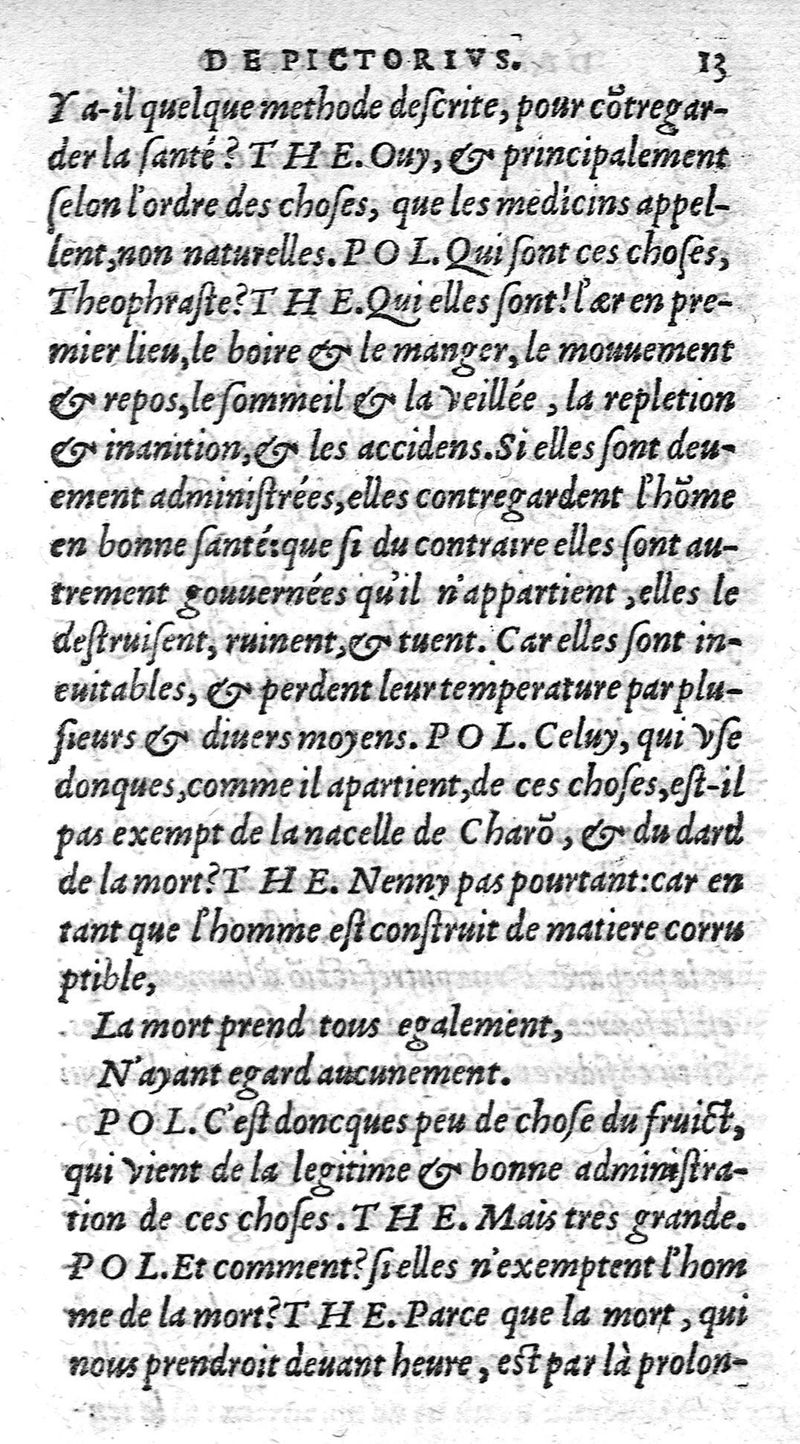 DE PICTORIVS. 13
Y a-il quelque methode deſcrite, pour cõtregar-
der la ſanté? THE. Ouy, & principalement
ſelon l'ordre des choſes, que les medicins appel-
lent, non naturelles. POL. Qui ſont ces choſes,
Theophraſte? THE. Qui elles ſont! l'ær en pre-
mier lieu, le boire & le manger, le mouuement
& repos, le ſommeil & la veillée, la repletion
& inanition, & les accidens. Si elles ſont deu-
ement adminiſtrées, elles contregardent l'hõme
en bonne ſanté: que ſi du contraire elles ſont au-
trement gouuernées qu'il n'appartient, elles le
deſtruiſent, ruinent, & tuent. Car elles ſont in-
euitables, & perdent leur temperature par plu-
ſieurs & diuers moyens. POL. Celuy, qui vſe
donques, comme il apartient, de ces choſes, eſt-il
pas exempt de la nacelle de Charõ, & du dard
de la mort? THE. Nenny pas pourtant: car en
tant que l'homme eſt conſtruit de matiere corru
ptible,
La mort prend tous egalement,
N'ayant egard aucunement.
POL. C'eſt doncques peu de choſe du fruict,
qui vient de la legitime & bonne adminiſtra-
tion de ces choſes. THE. Mais tres grande.
POL. Et comment? ſi elles n'exemptent l'hom
me de la mort? THE. Parce que la mort, qui
nous prendroit deuant heure, est par là prolon-